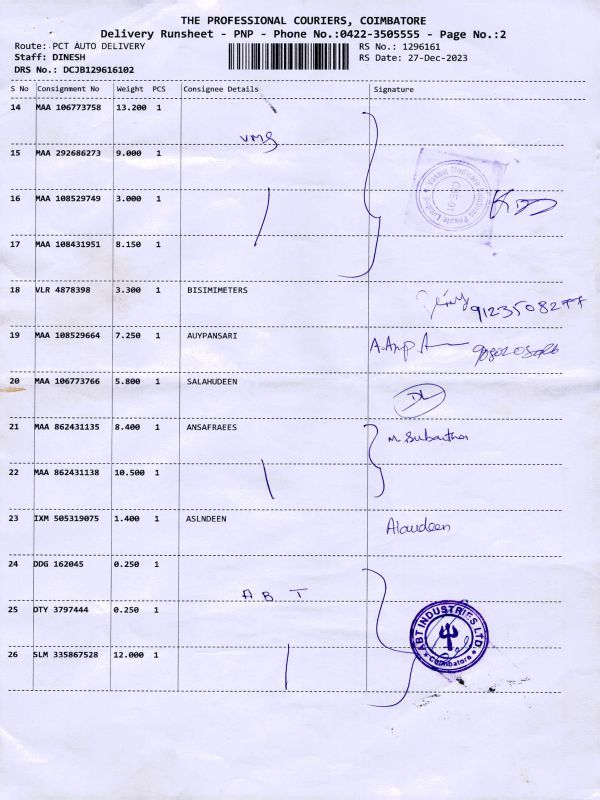 THE PROFESSIONAL COURIERS, COIMBATORE
Delivery Runsheet - PNP - Phone No.:0422-3505555 - Page No.:2
Route: PCT AUTO DELIVERY RS No.: 1296161
Staff: DINESH RS Date: 27-Dec-2023
DRS No.: DCJB129616102
S No Consignment No Weight PCS Consignee Details Signature
14 MAA 106773758 13.200 1
VMS
15 MAA 292686273 9.000 1
16 MAA 108529749 3.000 1
17 MAA 108431951 8.150 1
18 VLR 4878398 3.300 1 BISIMIMETERS
19 MAA 108529664 7.250 1 AUYPANSARI
20 MAA 106773766 5.800 1 SALAHUDEEN
21 MAA 862431135 8.400 1 ANSAFRAEES
22 MAA 862431138 10.500 1
23 IXM 505319075 1.400 1 ASLNDEEN Alaudeen
24 DDG 162045 0.250 1
A B T
25 DTY 3797444 0.250 1
ABT INDUSTRIES LTD.
Coimbatore
26 SLM 335867528 12.000 1